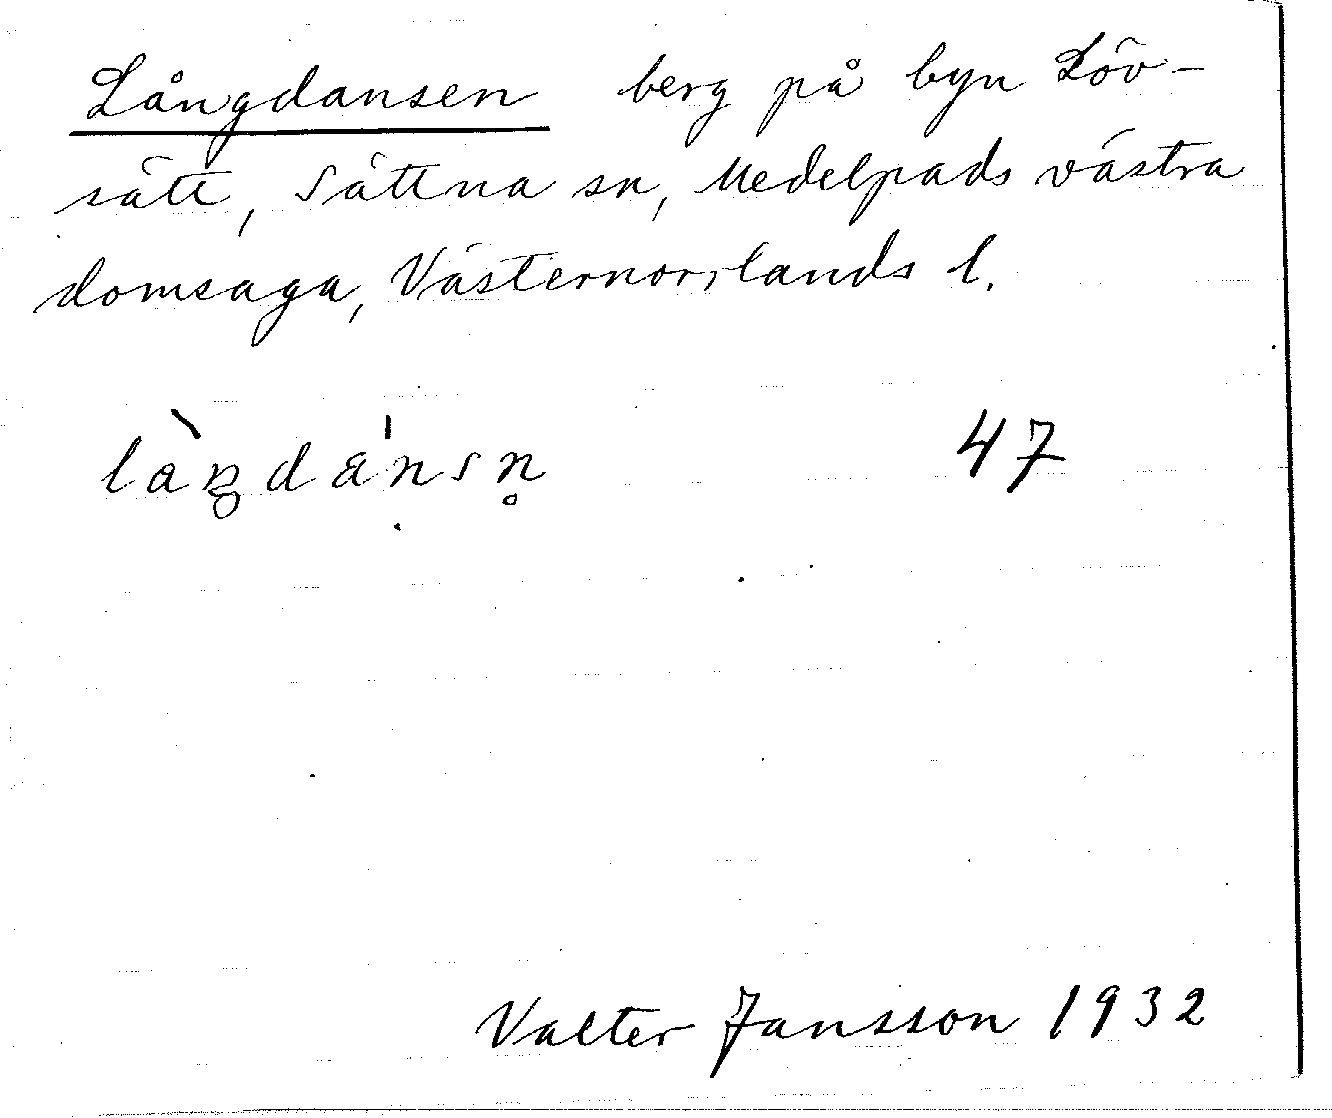 Långdansen berg på byn Löv-
sätt, Sättna sn, Medelpads västra
domsaga, Västernorrlands l.
làŋdánsn̥ 47
Valter Jansson 1932